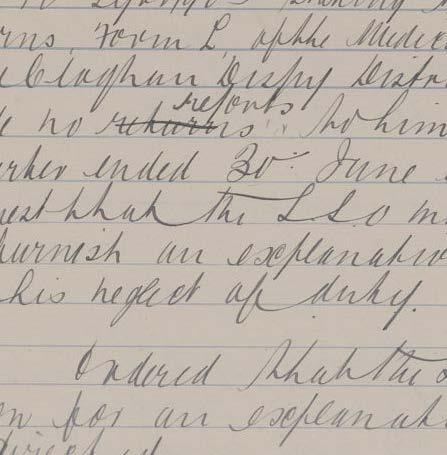 urns, Form L, of the Medic
Cloghan Dispy Distri
no returns reports to him
arter ended 30th June
uest that the L.S.O m
furnish an explanation
his neglect of duty.
Ordered that the
for an explanat
direct